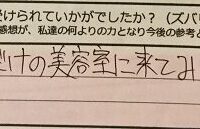 受けられていかがでしたか？（ズバリ
感想が、私達の何よりの力となり今後の参考と
けの美容室に来てみ